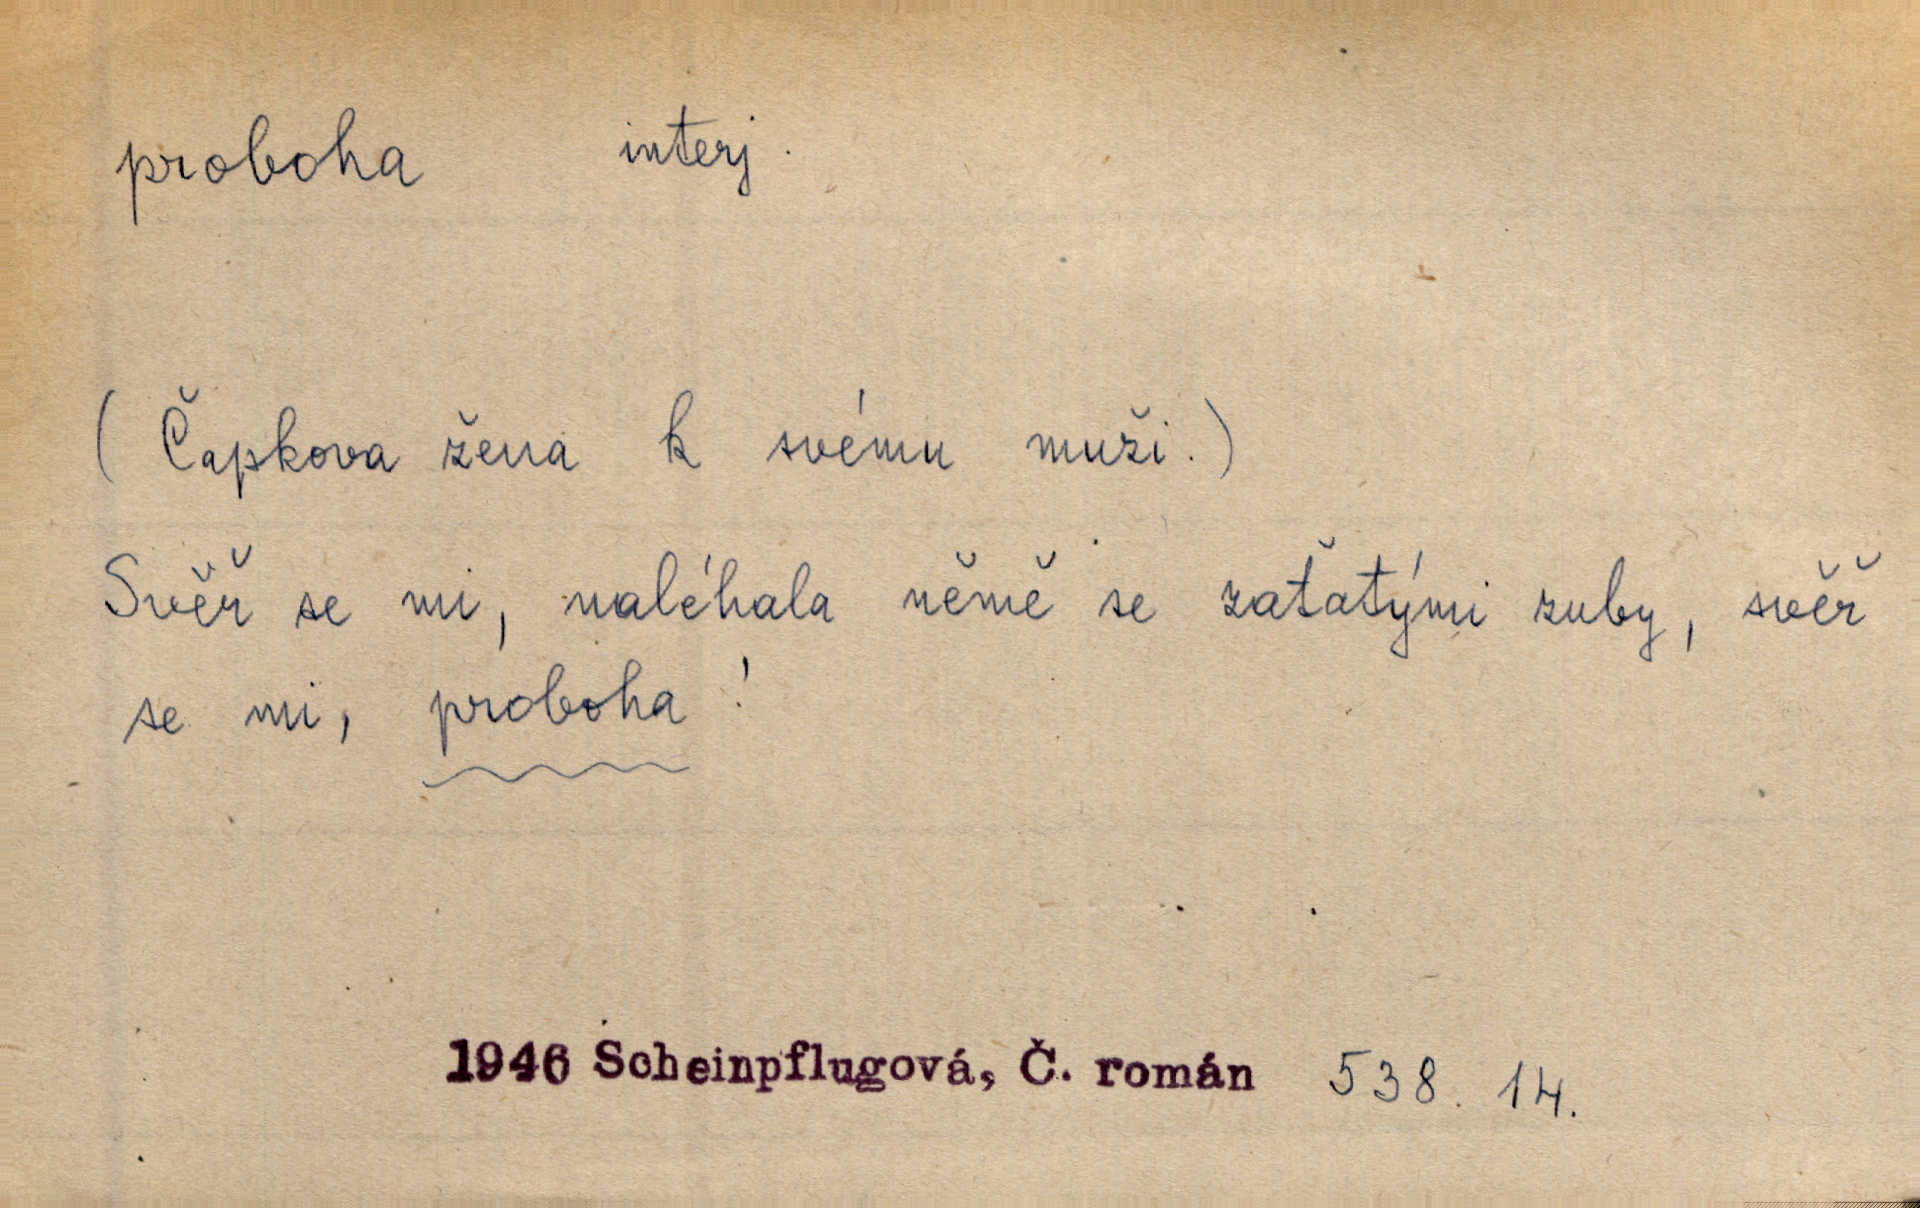 proboha interj.
(Čapkova žena k svému muži.)
Svěř se mi, naléhala němě se zaťatými zuby, svěř
se mi, proboha!
1946 Scheinpflugová, Č. román 538. 14.